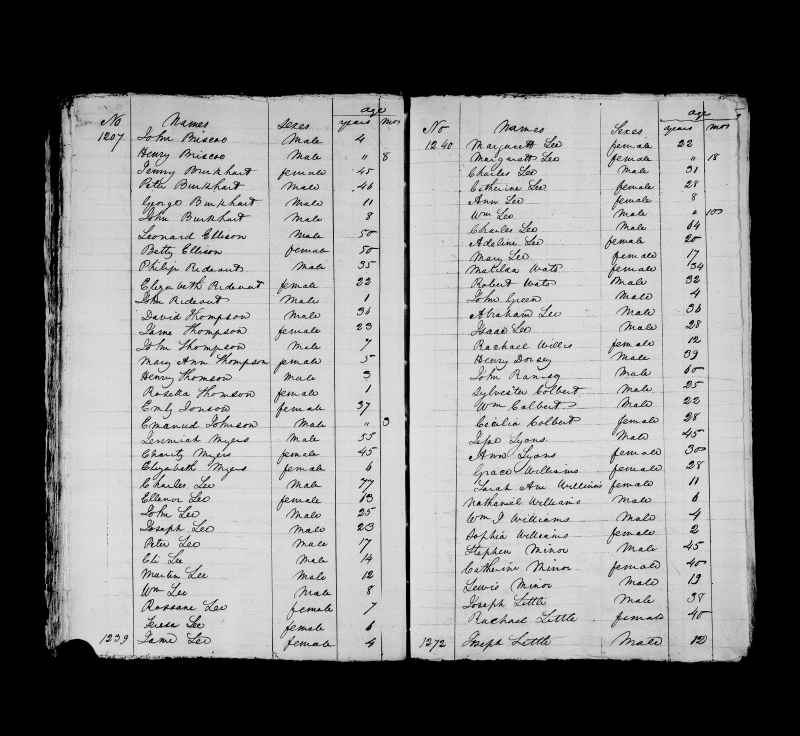 age
No Names Sexes years mos
1207 John Briscoe Male 4
Henry Briscoe Male " 8
Jenny Burkhart female 45
Peter Burkhart Male 46
George Burkhart Male 11
John Burkhart Male 8
Leonard Ellison Male 50
Betty Ellison female 50
Philip Rideout Male 35
Elizabeth Rideout female 22
John Rideout Male 1
David Thompson Male 36
Jame Thompson female 23
John Thompson Male 7
Mary Ann Thompson female 5
Henry Thomson Male 3
Rosetta Thomson female 1
Emly Jonson female 37
Emanuel Johnson Male " 3
Jeremiah Myers Male 55
Charity Myers female 45
Elizabeth Myers female 6
Charles Lee Male 77
Ellenor Lee female 63
John Lee Male 25
Joseph Lee Male 23
Peter Lee Male 17
Eli Lee Male 14
Martin Lee Male 12
Wm Lee Male 8
Rossane Lee female 7
Teresa Lee female 6
1239 Jame Lee female 4
age
No Names Sexes years mos
1240 Margarett Lee female 22
Margarett Lee female " 18
Charles Lee Male 31
Catherine Lee female 28
Ann Lee female 8
Wm Lee Male " 10
Charles Lee Male 64
Adeline Lee female 20
Mary Lee female 17
Matilda Wats female 34
Robert Wats Male 32
John Green Male 4
Abraham Lee Male 36
Isaac Lee Male 28
Rachael Willis female 12
Henry Dorsey Male 39
John Ramsey Male 60
Sylvester Colbert Male 25
Wm Calbert Male 22
Cecilia Colbert female 28
Jesse Lyons Male 45
Ann Lyons female 30
Grace Williams female 28
Sarah Ann Williams female 11
Nathaniel Williams Male 6
Wm J Williams Male 4
Sophia Williams female 2
Stephen Minor Male 45
Catherine Minor female 40
Lewis Minor Male 19
Joseph Little Male 38
Rachael Little female 40
1272 Joseph Little Male 12